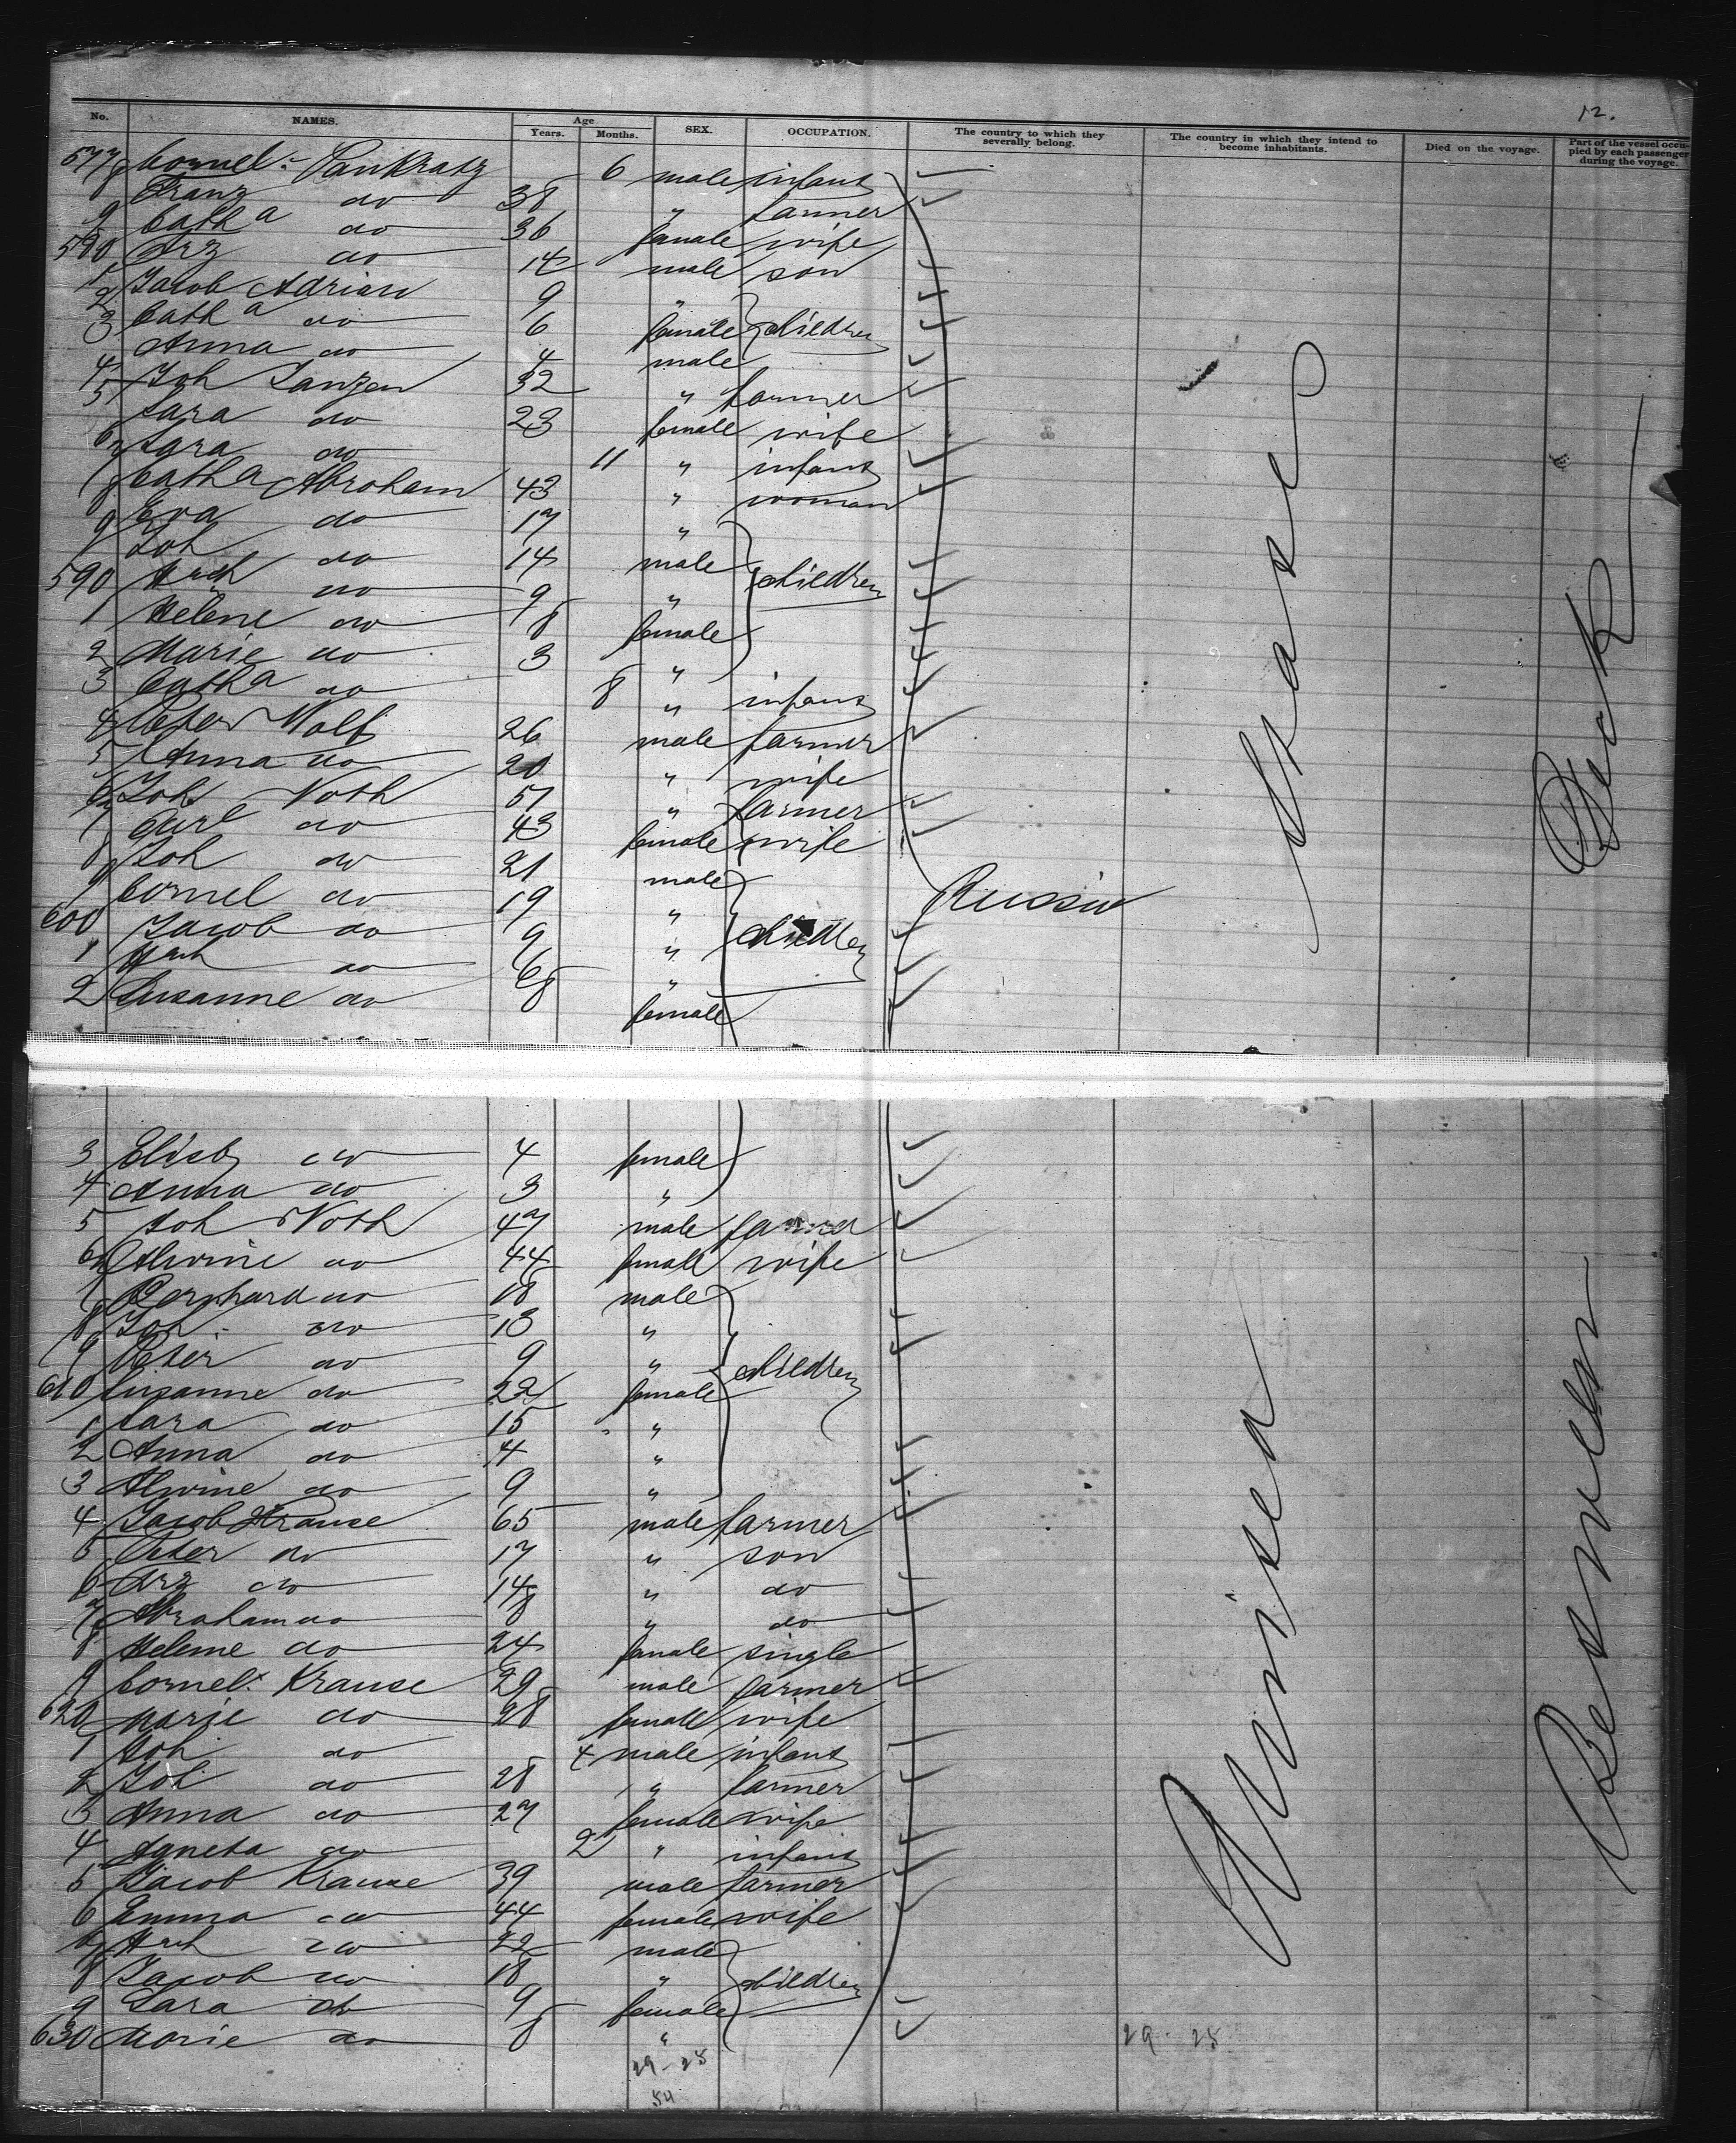 12.
No. NAMES. Age Years. Months. SEX. OCCUPATION. The country to which they severally belong. The country in which they intend to become inhabitants. Died on the voyage. Part of the vessel occupied by each passenger during the voyage.
577 Cornel: Pankratz 6 male infant
8 Franz do 38 " farmer
9 Cath a do 36 female wife
580 Frz do 14 male son
1 Jacob Adrian 9 "
2 Cath a do 6 female children
3 Anna do 4 male
4 Joh Janzen 32 " farmer
5 Sara do 23 female wife
6 Sara do 11 " infant
7 Cath a Abraham 43 " woman
8 Eva do 17 "
9 Joh do 14 male
590 Hrch do 9 " children
1 Helene do 8 female
2 Marie do 3 "
3 Cath a do 8 " infant
4 Peter Wolf 26 male farmer
5 Anna do 20 " wife
6 Joh Voth 51 " farmer
7 do 43 female wife
8 Joh do 21 male
9 Cornel do 19 " Russia
600 Jacob do 9 " children
1 Hrch do 6 "
2 Susanne do 8 female
3 Elisb do 4 female
4 Anna do 3 "
5 Joh Voth 47 male farmer
6 Alwine do 44 female wife
7 Bernhard do 18 male
8 Joh: do 13 "
9 Peter do 9 " children
610 Susanne do 22 female
1 Sara do 15 "
2 Anna do 4 "
3 Alwine do 9 "
4 Jacob Krause 65 male farmer
5 Peter do 17 " son
6 Frz do 14 " do
7 Abraham do 8 " do
8 Helene do 24 female single
9 Cornel: Krause 29 male farmer
620 Marie do 28 female wife
1 Joh do 4 male infant
2 Joh do 28 " farmer
3 Anna do 27 female wife
4 Agneta do 2 " infant
5 Jacob Krause 39 male farmer
6 Emma do 44 female wife
7 Hrch do 22 male
8 Jacob do 18 " children
9 Sara do 9 female
630 Marie do 8 "
29 - 25
54
29 - 25
United States
Between Deck